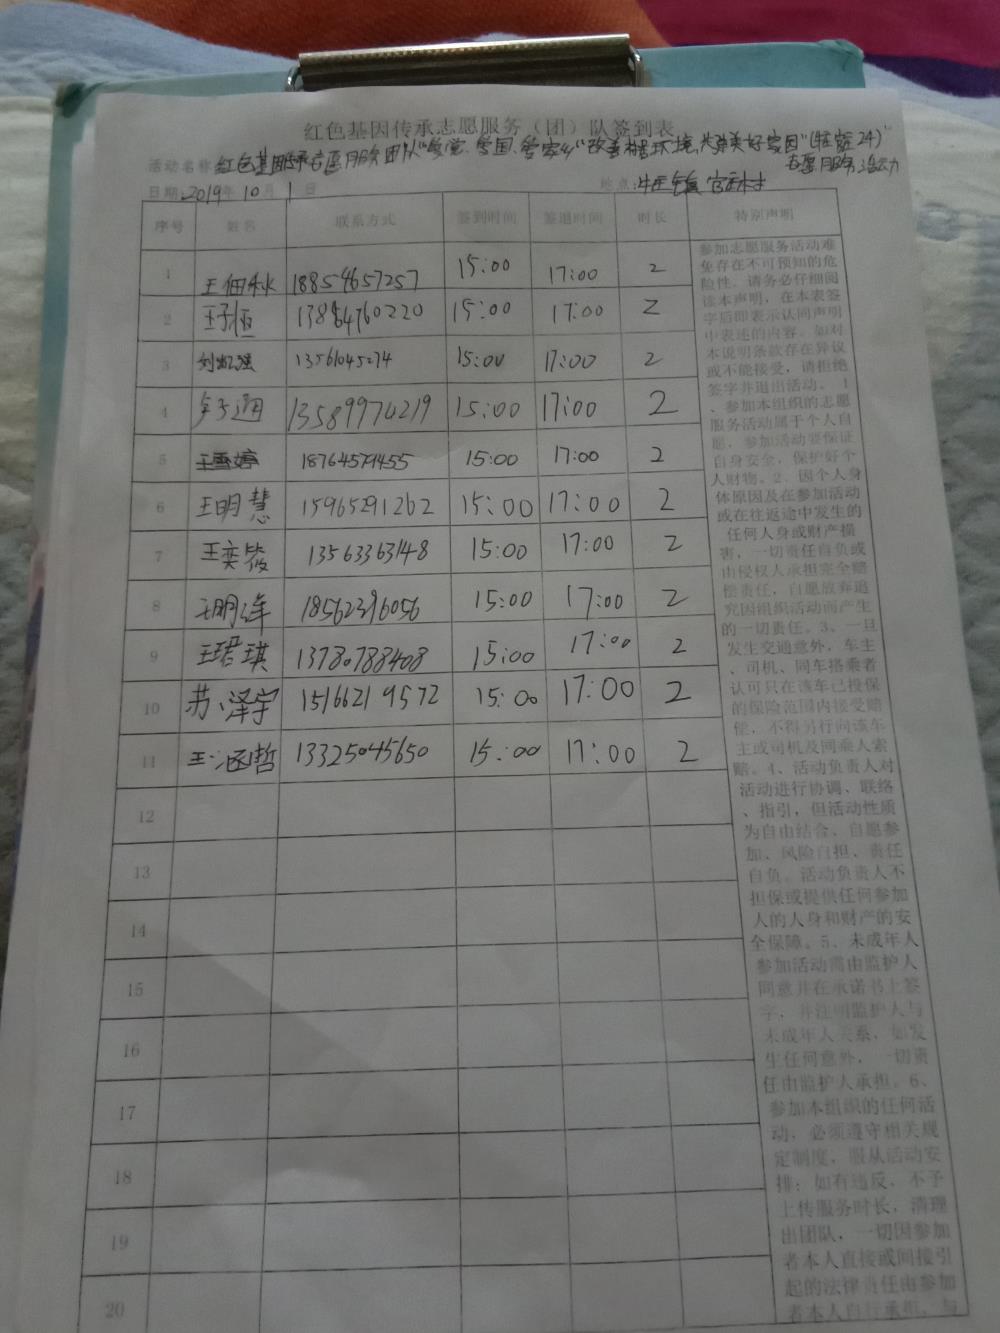 红色基因传承志愿服务（团）队签到表
活动名称 红色基因传承志愿服务团队"爱党、爱国、爱家乡"改善 环境,共享美好家园"
志愿服务活动
日期:2019年10月1日 地点:
序号 姓名 联系方式 签到时间 签退时间 时长 特别声明
1 18854657257 15:00 17:00 2
2 王子恒 15:00 17:00 2
3 刘凯强 13561045274 15:00 17:00 2
4 13589976219 15:00 17:00 2
5 王雪婷 18764579455 15:00 17:00 2
6 王明慧 15965291262 15:00 17:00 2
7 王奕筱 13563363148 15:00 17:00 2
8 18562396056 15:00 17:00 2
9 王珺琪 13780788408 15:00 17:00 2
10 苏泽宇 15166219572 15:00 17:00 2
11 王涵哲 13325045650 15:00 17:00 2
12
13
14
15
16
17
18
19
20
参加志愿服务活动难
免存在不可预知的危
险性。请务必仔细阅
读本声明，在本表签
字后即表示认同声明
中表述的内容。如对
本说明条款存在异议
或不能接受，请拒绝
签字并退出活动。1
、参加本组织的志愿
服务活动属于个人自
愿，参加活动要保证
自身安全，保护好个
人财物。2、因个人身
体原因及在参加活动
或在往返途中发生的
任何人身或财产损
害，一切责任自负或
由侵权人承担完全赔
偿责任，自愿放弃追
究因组织活动而产生
的一切责任。3、一旦
发生交通意外，车主
、司机、同车搭乘者
认可只在该车已投保
的保险范围内接受赔
偿，不得另行向该车
主或司机及同乘人索
赔。4、活动负责人对
活动进行协调、联络
、指引，但活动性质
为自由结合、自愿参
加、风险自担、责任
自负。活动负责人不
担保或提供任何参加
人的人身和财产的安
全保障。5、未成年人
参加活动需由监护人
同意并在承诺书上签
字，并注明监护人与
未成年人关系，如发
生任何意外，一切责
任由监护人承担。6、
参加本组织的任何活
动，必须遵守相关规
定制度，服从活动安
排；如有违反，不予
上传服务时长，清理
出团队，一切因参加
者本人直接或间接引
起的法律责任由参加
者本人自行承担，与